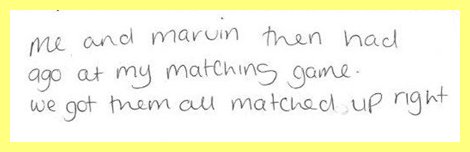 me and marvin then had
ago at my matching game.
we got them all matched up right